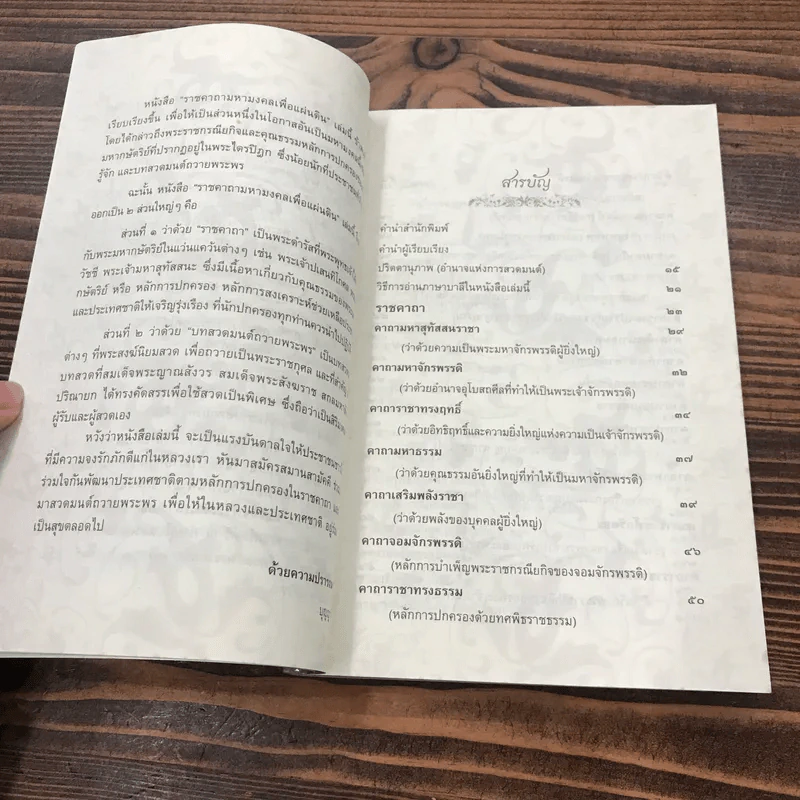 หนังสือ "ราชคาถามหามงคลเพื่อแผ่นดิน" เล่มนี้
เรียบเรียงขึ้น เพื่อให้เป็นส่วนหนึ่งในโอกาสอันเป็นมหามงคล
โดยได้กล่าวถึงพระราชกรณียกิจและคุณธรรมหลักการปกครอง
มหากษัตริย์ที่ปรากฏอยู่ในพระไตรปิฎก ซึ่งน้อยนักที่ประชาชน
รู้จัก และบทสวดมนต์ถวายพระพร
ฉะนั้น หนังสือ "ราชคาถามหามงคลเพื่อแผ่นดิน" เล่มนี้
ออกเป็น ๒ ส่วนใหญ่ๆ คือ
ส่วนที่ ๑ ว่าด้วย "ราชคาถา" เป็นพระดำรัสที่พระพุทธองค์
กับพระมหากษัตริย์ในแว่นแคว้นต่างๆ เช่น พระเจ้าปเสนทิโกศล
วัชชี พระเจ้ามหาสุทัสสนะ ซึ่งมีเนื้อหาเกี่ยวกับคุณธรรมของ
กษัตริย์ หรือ หลักการปกครอง หลักการสงเคราะห์ช่วยเหลือ
และประเทศชาติให้เจริญรุ่งเรือง ที่นักปกครองทุกท่านควรนำไป
ส่วนที่ ๒ ว่าด้วย "บทสวดมนต์ถวายพระพร" เป็นบทสวด
ต่างๆ ที่พระสงฆ์นิยมสวด เพื่อถวายเป็นพระราชกุศล และที่สำคัญ
บทสวดที่สมเด็จพระญาณสังวร สมเด็จพระสังฆราช สกลมหา
ปริณายก ได้ทรงคัดสรรเพื่อใช้สวดเป็นพิเศษ ซึ่งถือว่าเป็นสิริมงคล
ผู้รับและผู้สวดเอง
หวังว่าหนังสือเล่มนี้ จะเป็นแรงบันดาลใจให้ประชาชน
ที่มีความจงรักภักดีแก่ในหลวงเรา หันมาสมัครสมานสามัคคี
ร่วมใจกันพัฒนาประเทศชาติตามหลักการปกครองในราชคาถา และ
มาสวดมนต์ถวายพระพร เพื่อให้ในหลวงและประเทศชาติ อยู่
เป็นสุขตลอดไป
ด้วยความปรารถ
สารบัญ
คำนำสำนักพิมพ์
คำนำผู้เรียบเรียง
ปริตตานุภาพ (อำนาจแห่งการสวดมนต์) ๑๕
วิธีการอ่านภาษาบาลีในหนังสือเล่มนี้ ๒๑
ราชคาถา ๒๓
คาถามหาสุทัสสนราชา ๒๙
(ว่าด้วยความเป็นพระมหาจักรพรรดิผู้ยิ่งใหญ่)
คาถามหาจักรพรรดิ ๓๒
(ว่าด้วยอำนาจอุโบสถศีลที่ทำให้เป็นพระเจ้าจักรพรรดิ)
คาถาราชาทรงฤทธิ์ ๓๔
(ว่าด้วยอิทธิฤทธิ์และความยิ่งใหญ่แห่งความเป็นเจ้าจักรพรรดิ)
คาถามหาธรรม ๓๗
(ว่าด้วยคุณธรรมอันยิ่งใหญ่ที่ทำให้เป็นมหาจักรพรรดิ)
คาถาเสริมพลังราชา ๓๙
(ว่าด้วยพลังของบุคคลผู้ยิ่งใหญ่)
คาถาจอมจักรพรรดิ ๔๖
(หลักการบำเพ็ญพระราชกรณียกิจของจอมจักรพรรดิ)
คาถาราชาทรงธรรม ๕๐
(หลักการปกครองด้วยทศพิธราชธรรม)